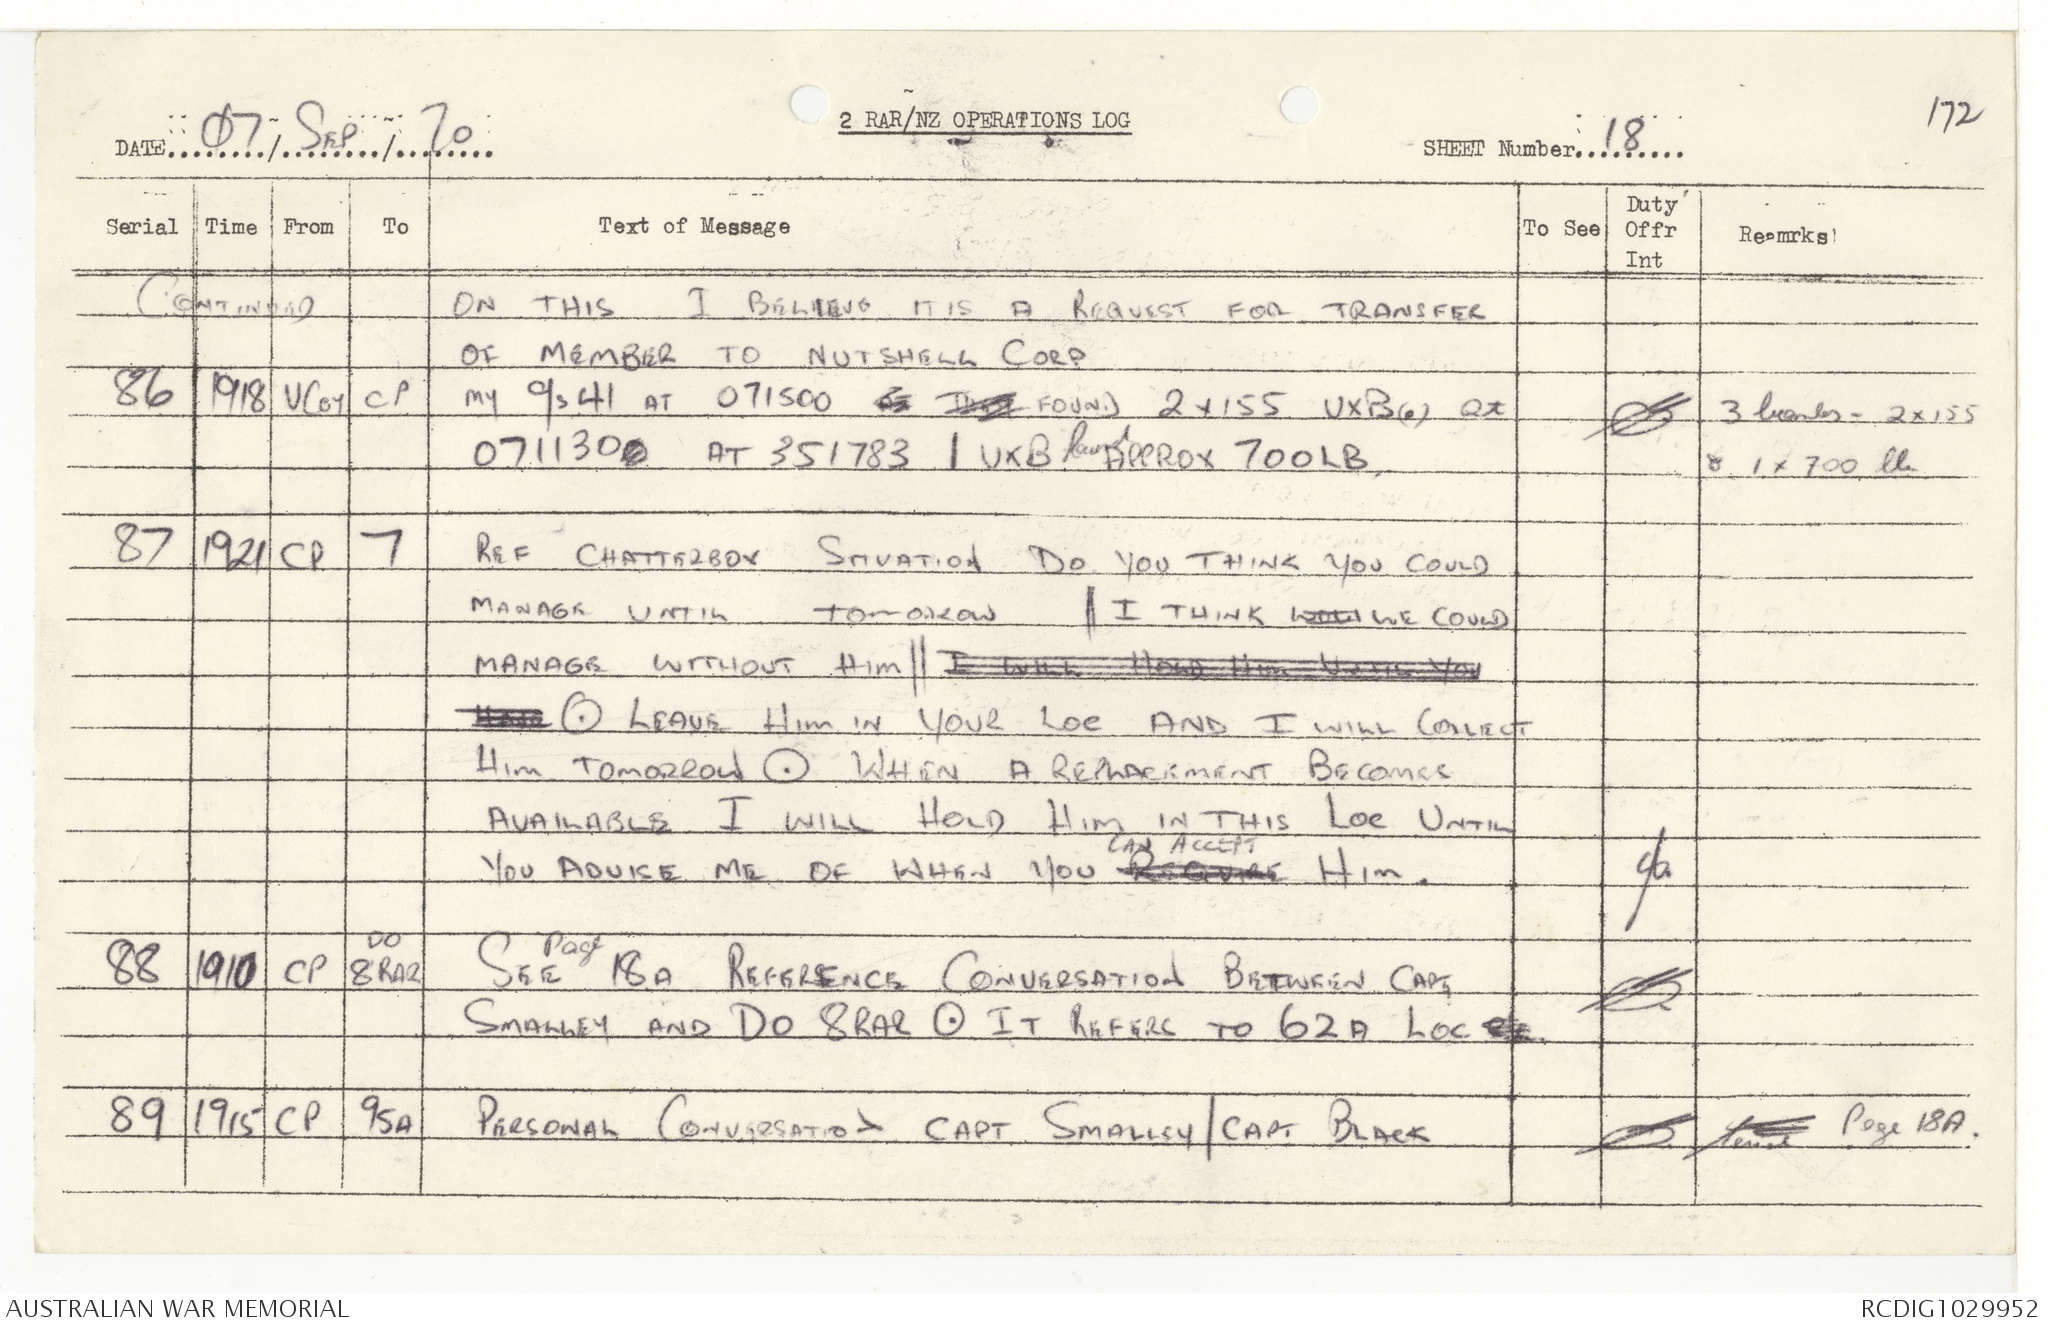 172
2 RAR/NZ OPERATIONS LOG
DATE 07/SEP/70
SHEET Number 18
Serial Time From To Text of Message To See Duty Offr Int Reamrks
CONTINUED ON THIS I BELIEVE IT IS A REQUEST FOR TRANSFER
OF MEMBER TO NUTSHELL CORP
86 1918 VCOY CP MY 9s41 AT 071500 FOUND 2x155 UXB(s) at 3 bombs - 2x155
0711300 AT 351783 1 UXB found APPROX 700LB & 1 x 700 lb
87 1921 CP 7 REF CHATTERBOX SITUATION DO YOU THINK YOU COULD
MANAGE UNTIL TOMORROW || I THINK WE COULD
MANAGE WITHOUT HIM || I WILL HOLD HIM UNTIL YOU
HAVE ⊙ LEAVE HIM IN YOUR LOC AND I WILL COLLECT
HIM TOMORROW ⊙ WHEN A REPLACEMENT BECOMES
AVAILABLE I WILL HOLD HIM IN THIS LOC UNTIL
YOU ADVISE ME OF WHEN YOU REQUIRE CAN ACCEPT HIM.
88 1910 CP DO 8RAR SEE Page 18A REFERENCE CONVERSATION BETWEEN CAPT
SMALLEY AND DO 8RAR ⊙ IT REFERS TO 62A LOC
89 1915 CP 95A PERSONAL CONVERSATION CAPT SMALLEY/CAPT BLACK Page 18A.
AUSTRALIAN WAR MEMORIAL
RCDIG1029952